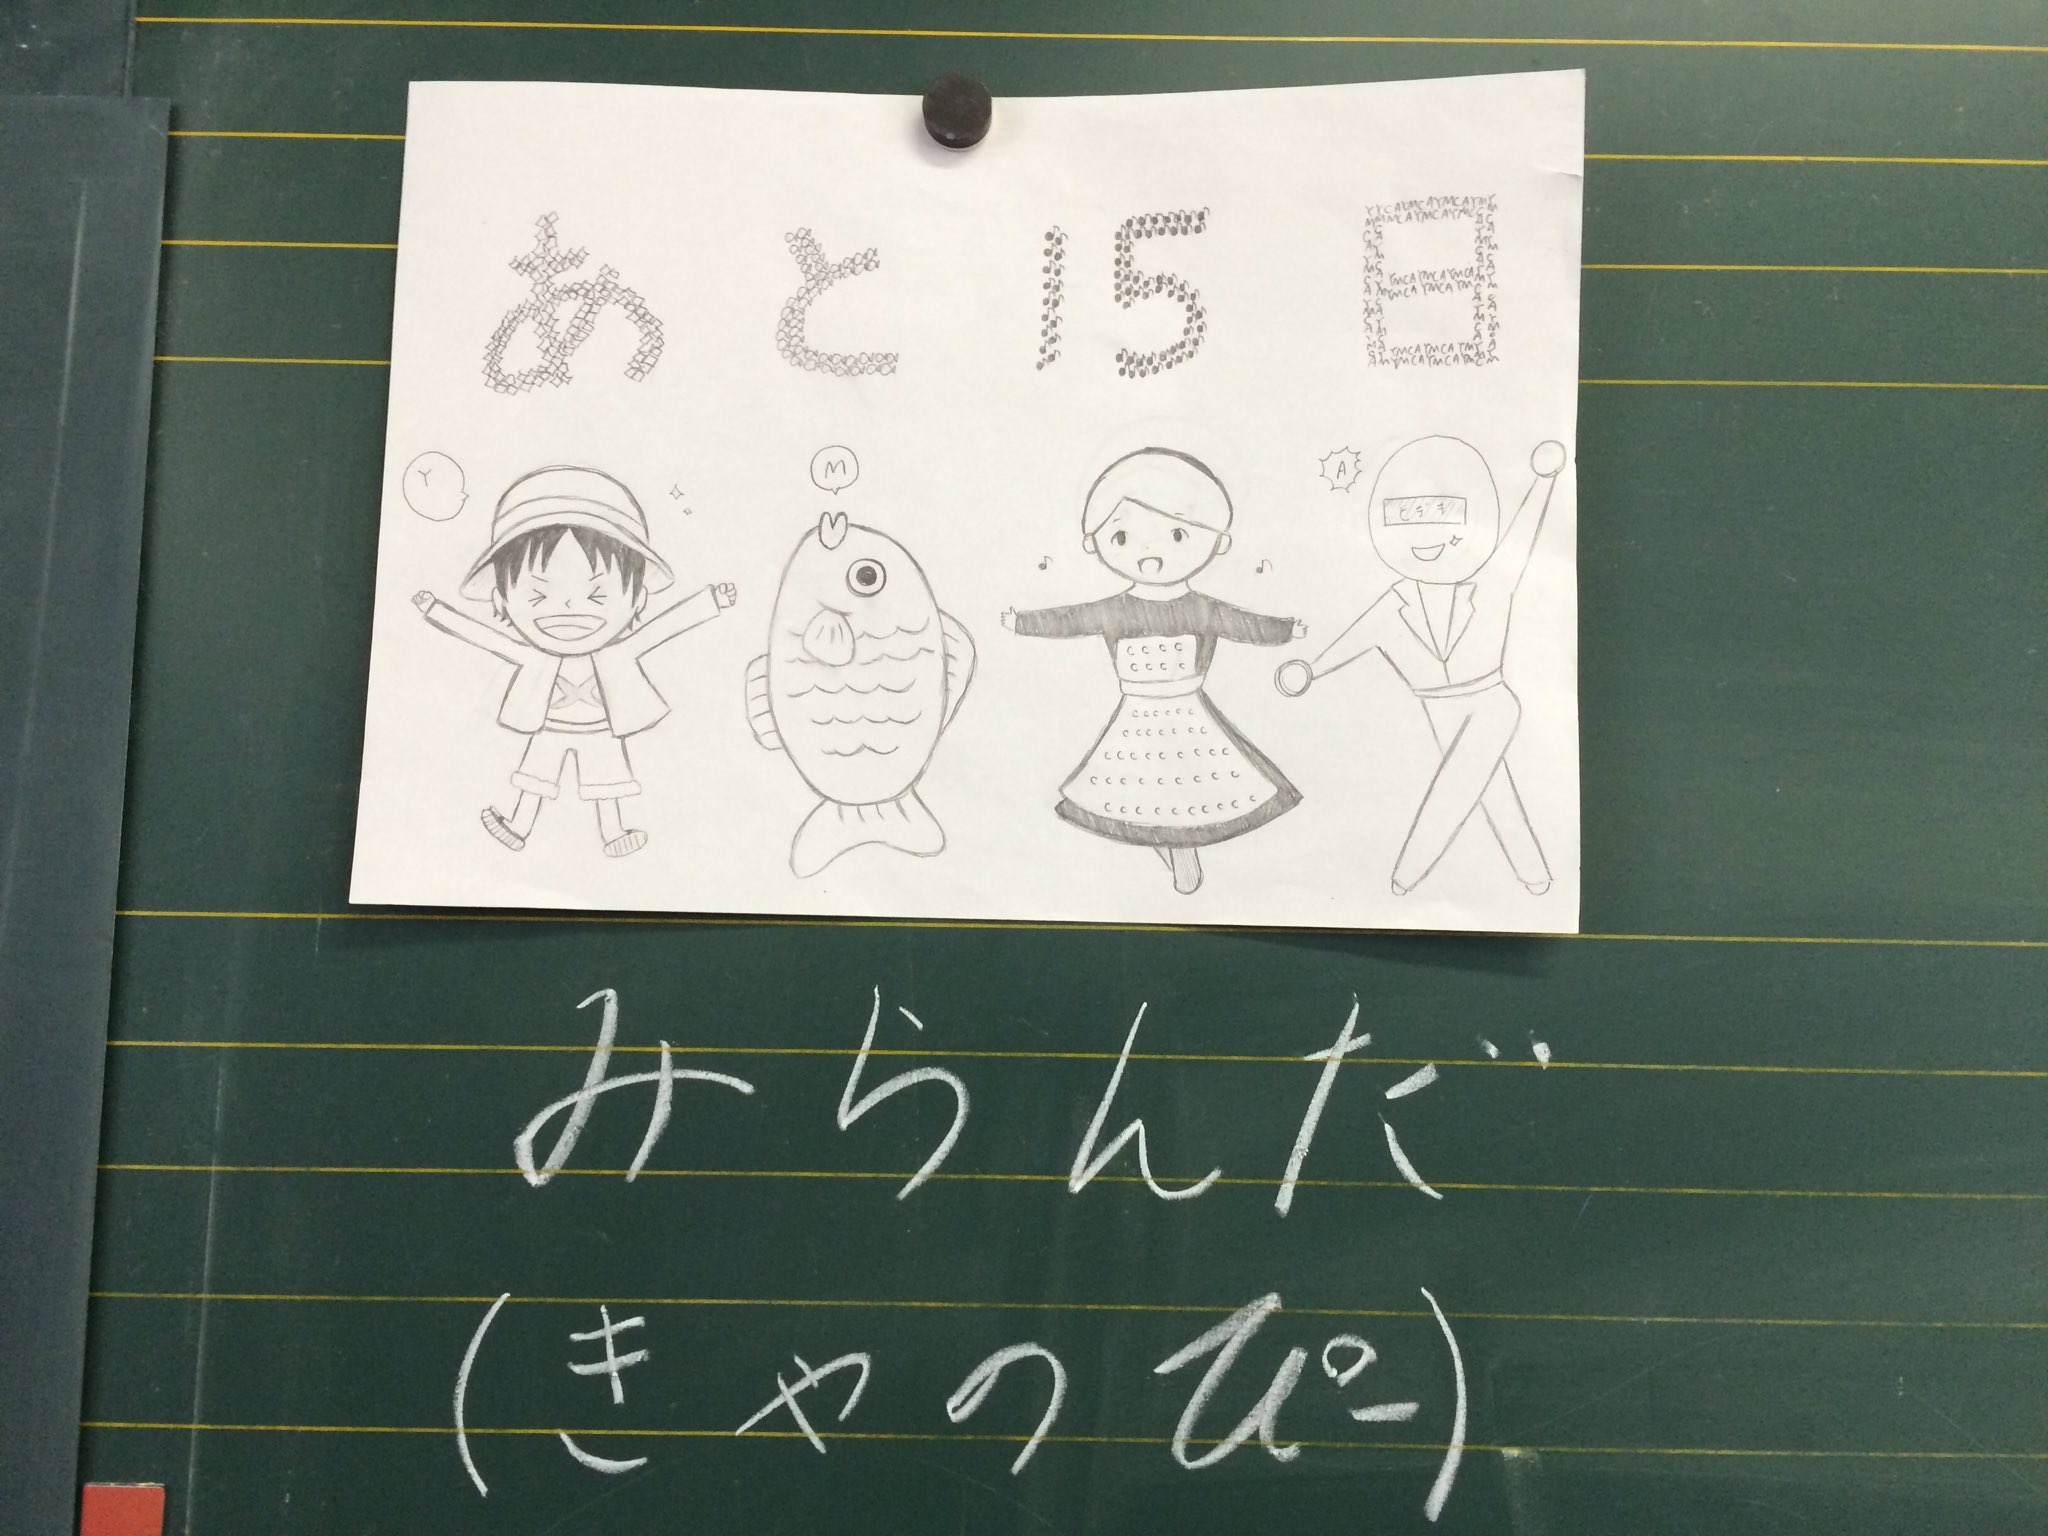 あと15日
Y
M
A
ヒデキ
みらんだ
(きゃのぴー)